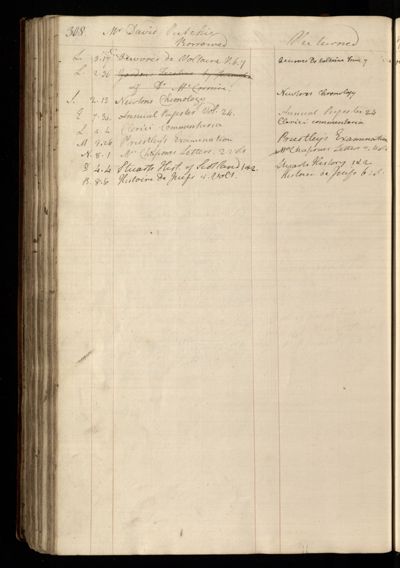 308 Mr David
Borrowed Returned
L. 3.17 Oeuvres de Voltaire V. 6.7 Oeuvres De Voltaire
L. 2.30
of Dr
S. 2.13 Newtons Chronology Newtons Chronology
E 7.34 Annual Register Vol. 24. Annual Register 24
L 4.4 Clarici Commentaria Clarici commentaria
M 9.26 Priestley's Examination Priestley's Examination
N. 8.1 Mrs Chapones Letters, 2 vols Mrs Chapones Letters
D 4.4 Stuarts Hist. of Scotland 1 & 2 Stuarts History 1 & 2
B. 8.6 Histoire de Juifs Histoire de Juifs